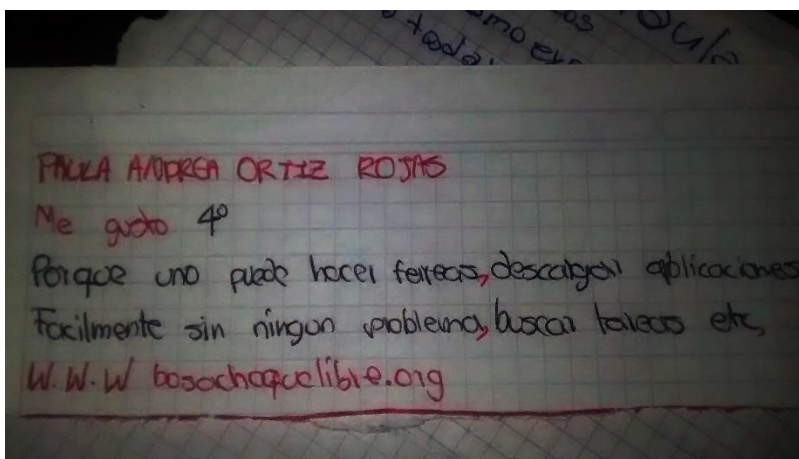 os
todo
mo
PAULA ANDREA ORTIZ ROJAS
Me gusto 4º
Porque uno puede hacer tereas, descargar aplicaciones
Facilmente sin ningun problema, buscar tareas etc,
W.W.W bosachoquelibre.org